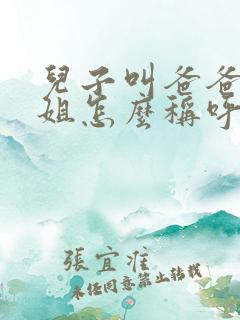 兒子叫爸爸
姐怎麼稱呼
張宜准
未經同意禁止轉載